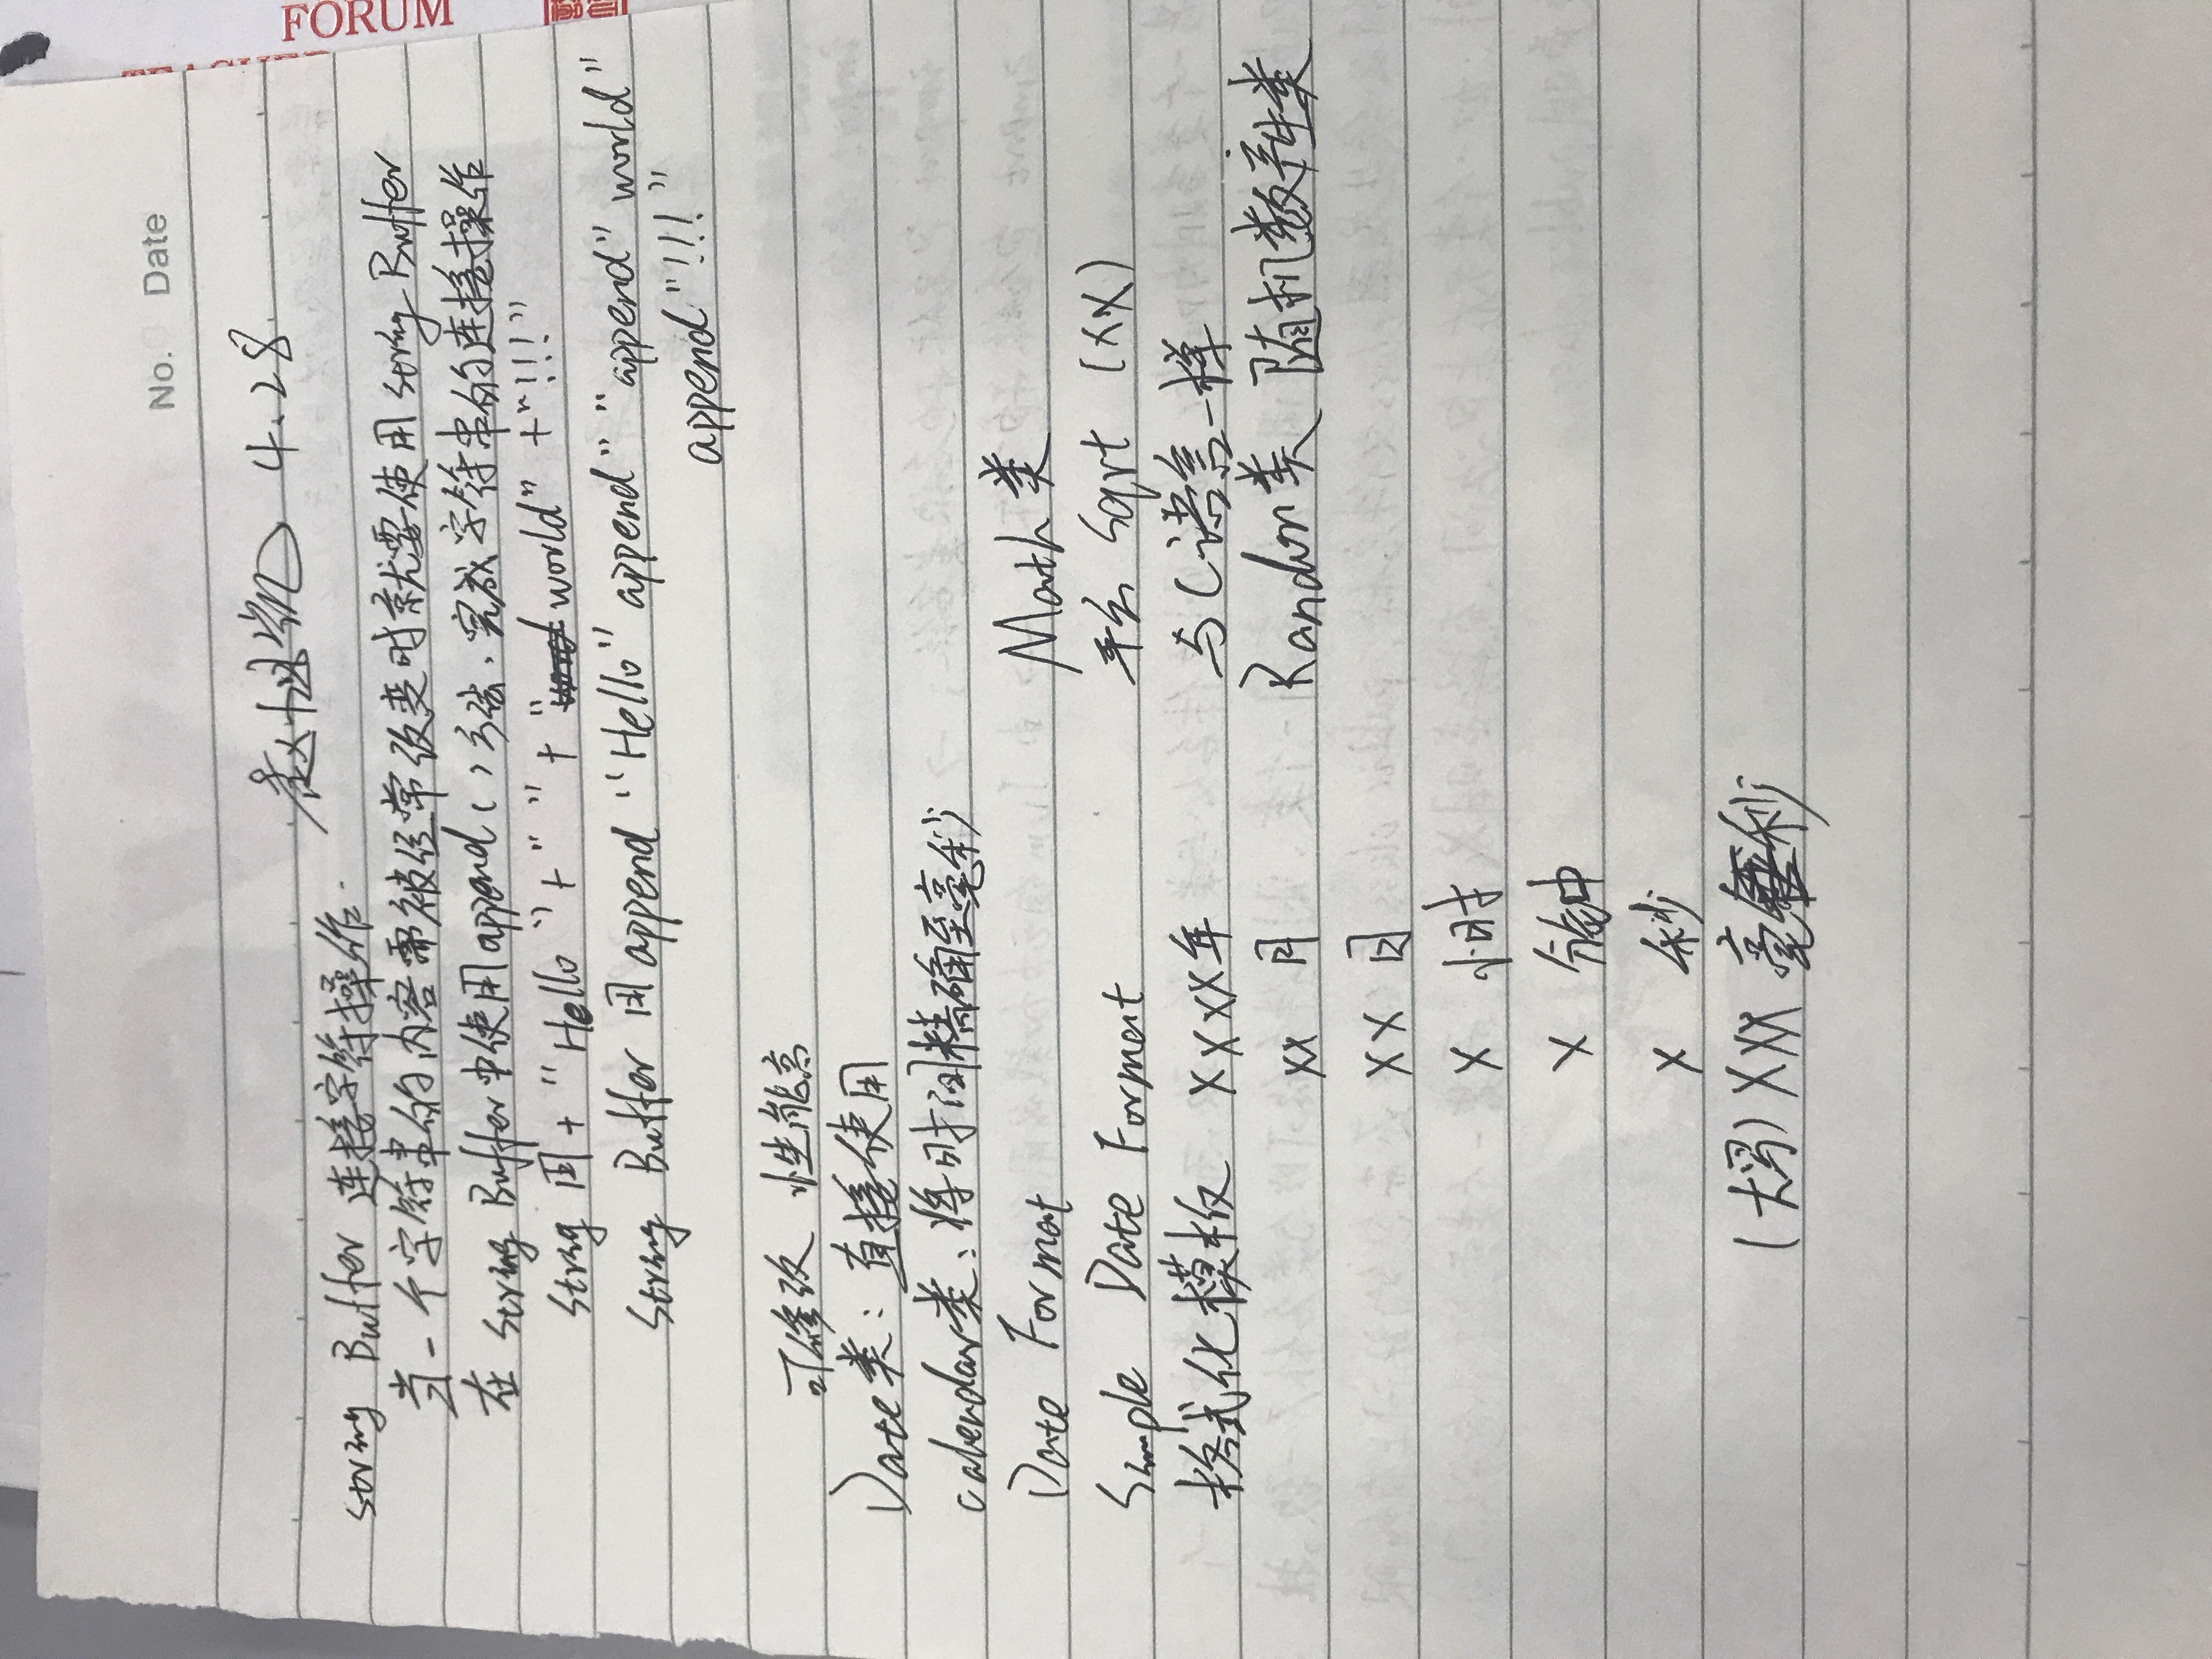 FORUM
No. Date
4.28
String Buffer 连接字符操作.
当一个字符串的内容需被经常改变时就要使用 String Buffer
在 String Buffer 中使用 append()方法.完成字符串的连接操作
String 用 + "Hello" + " " + "world" + "!!!"
String Buffer 用 append "Hello" append" " append" world"
append"!!!"
可修改 性能高
Date类: 直接使用
calendar类: 将时间精确至毫秒
Date Format Math 类
Simple Date Forment 平方 Sqrt (XX)
格式化模板 XXXX年 与C语言一样
XX 月 Random类 随机数产生类
XX 日
X 小时
X 分钟
X 秒
(大写) XXX 毫秒